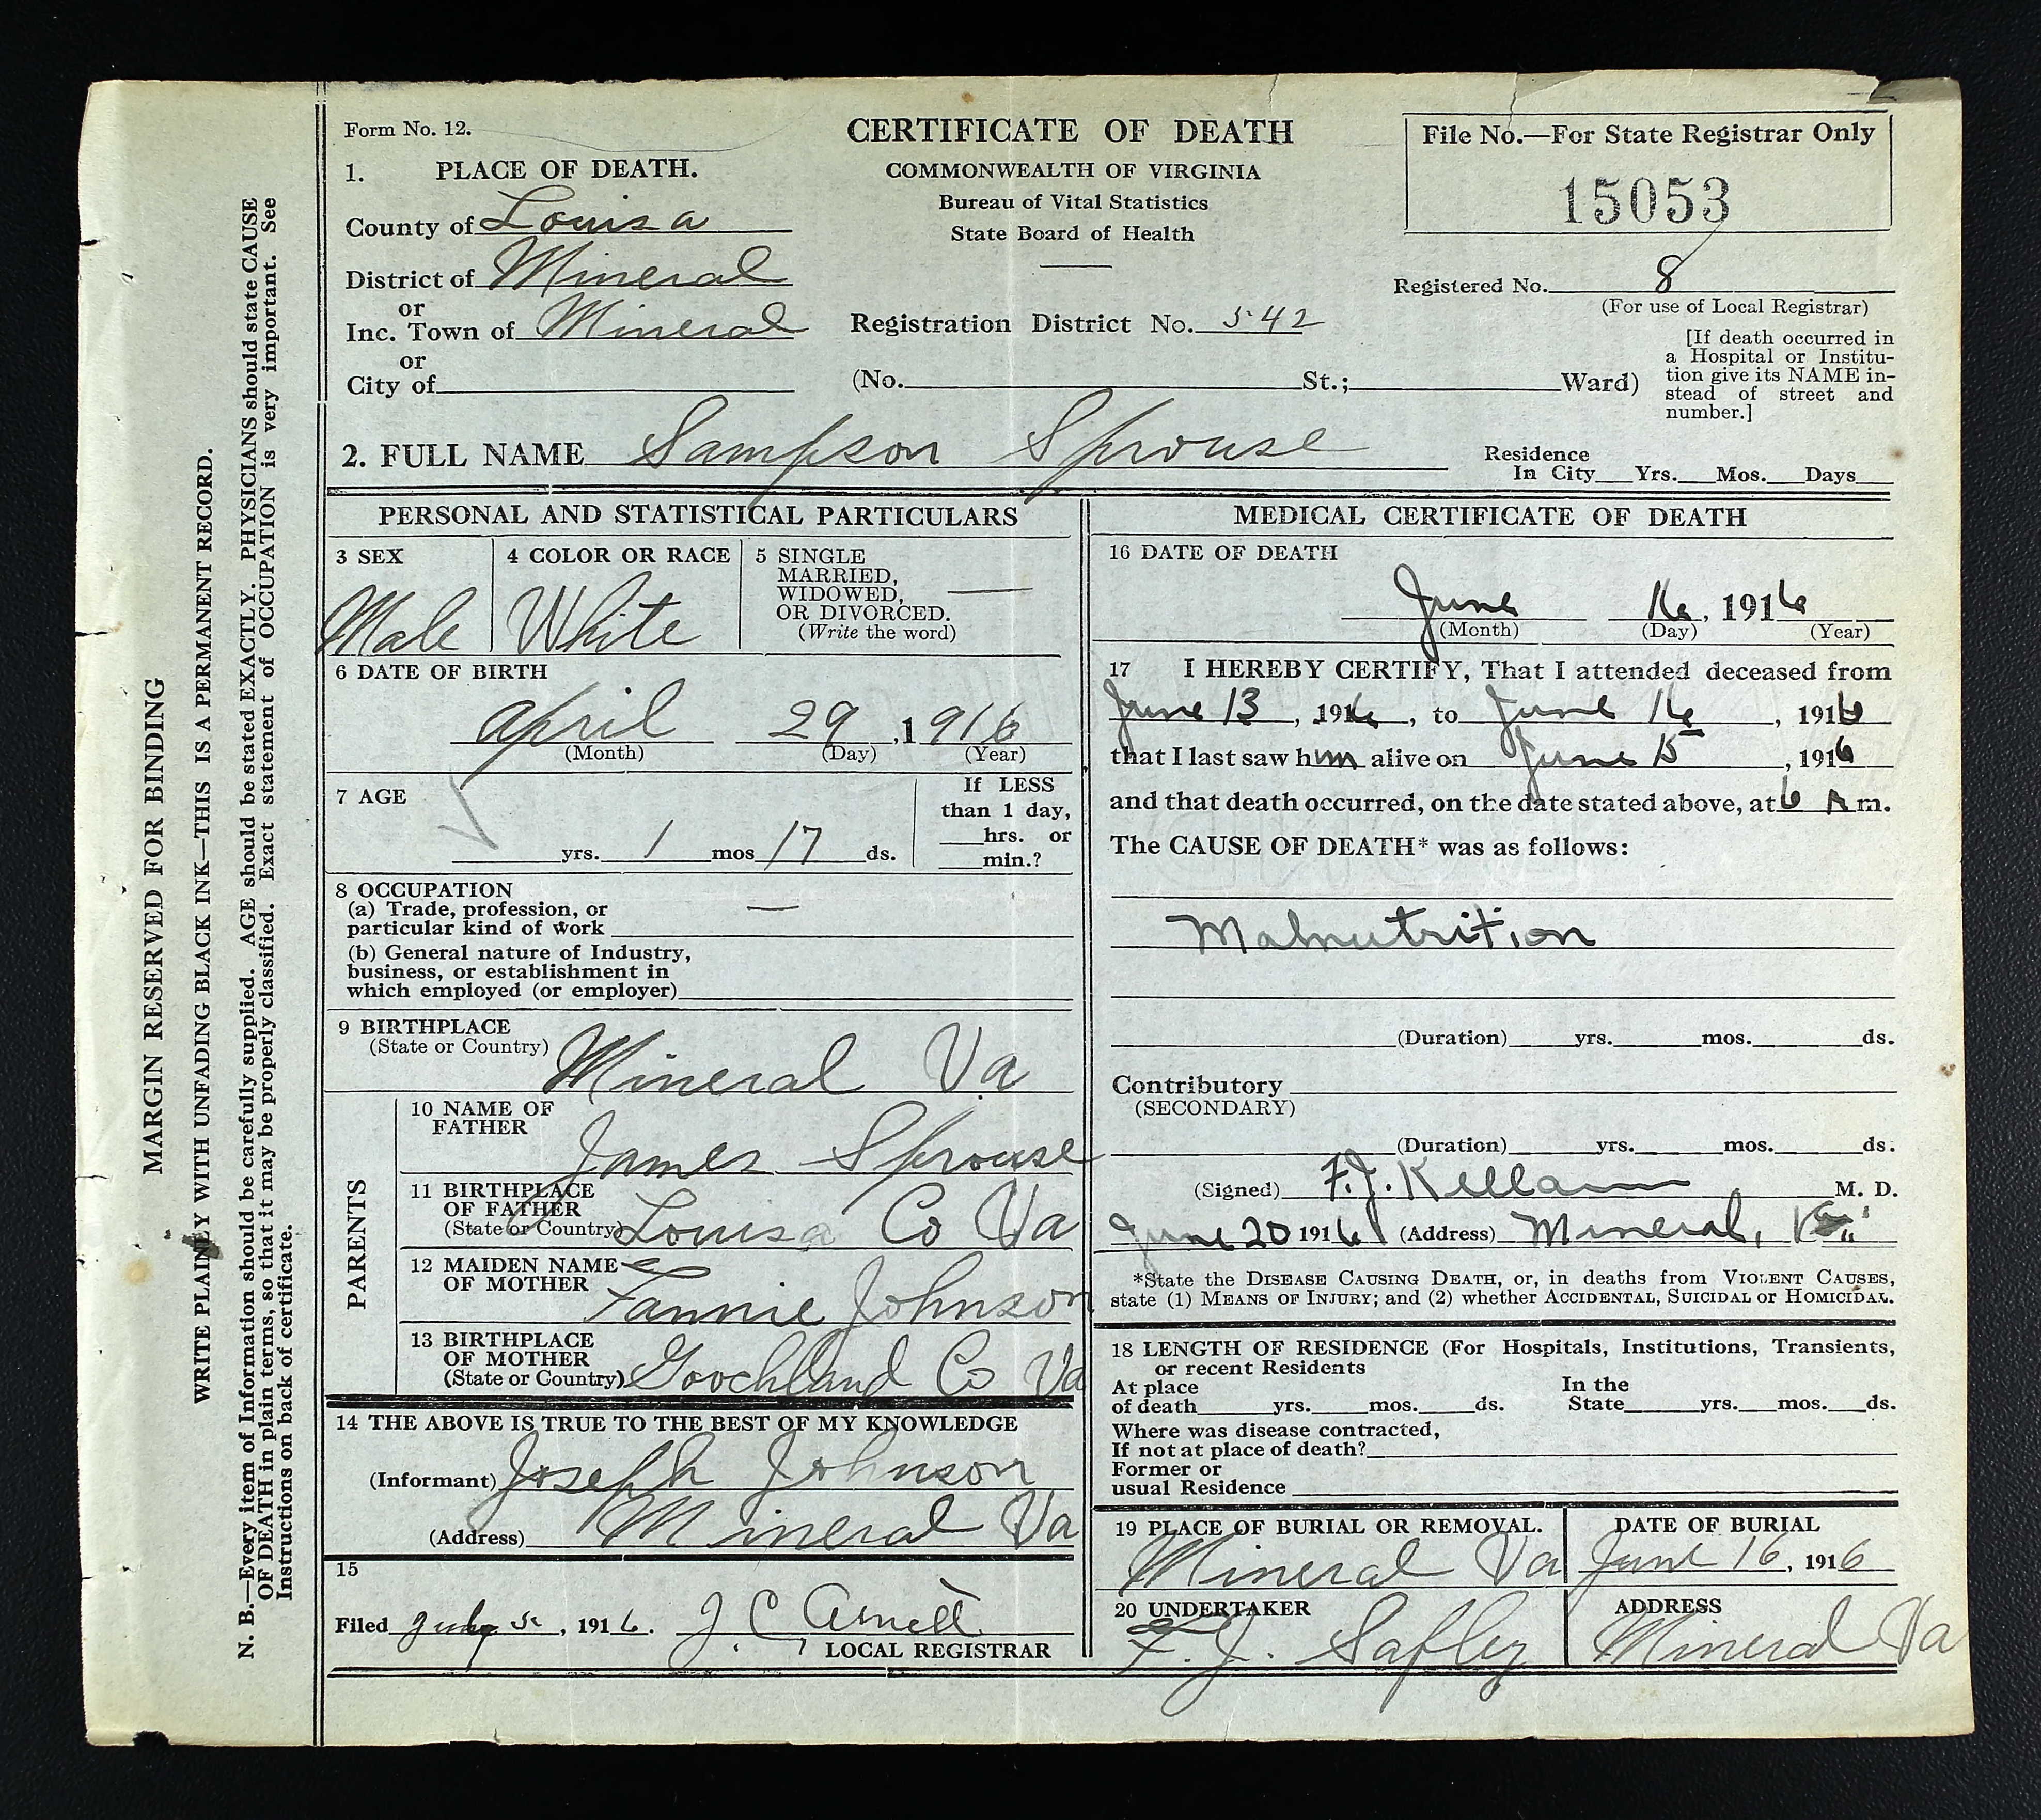 MARGIN RESERVED FOR BINDING
WRITE PLAINLY WITH UNFADING BLACK INK—THIS IS A PERMANENT RECORD.
N. B.—Every item of Information should be carefully supplied. AGE should be stated EXACTLY. PHYSICIANS should state CAUSE
OF DEATH in plain terms, so that it may be properly classified. Exact statement of OCCUPATION is very important. See
Instructions on back of certificate.
Form No. 12.
CERTIFICATE OF DEATH
COMMONWEALTH OF VIRGINIA
Bureau of Vital Statistics
State Board of Health
File No.—For State Registrar Only
15053
1. PLACE OF DEATH.
County of Louisa
District of Mineral
or
Inc. Town of Mineral
or
City of
Registration District No. 542
Registered No. 8
(For use of Local Registrar)
(No. St.; Ward)
[If death occurred in
a Hospital or Institu-
tion give its NAME in-
stead of street and
number.]
2. FULL NAME Sampson Sprouse
Residence
In City Yrs. Mos. Days
PERSONAL AND STATISTICAL PARTICULARS
3 SEX
Male
4 COLOR OR RACE
White
5 SINGLE
MARRIED,
WIDOWED, —
OR DIVORCED.
(Write the word)
6 DATE OF BIRTH
April 29, 1916
(Month) (Day) (Year)
7 AGE
yrs. 1 mos 17 ds.
If LESS
than 1 day,
hrs. or
min.?
8 OCCUPATION
(a) Trade, profession, or
particular kind of work —
(b) General nature of Industry,
business, or establishment in
which employed (or employer)
9 BIRTHPLACE
(State or Country) Mineral Va
PARENTS
10 NAME OF
FATHER
James Sprouse
11 BIRTHPLACE
OF FATHER
(State or Country) Louisa Co Va
12 MAIDEN NAME
OF MOTHER
Fannie Johnson
13 BIRTHPLACE
OF MOTHER
(State or Country) Goochland Co Va
14 THE ABOVE IS TRUE TO THE BEST OF MY KNOWLEDGE
(Informant) Joseph Johnson
(Address) Mineral Va
15
Filed July 5, 1916. J. C. Arnett
LOCAL REGISTRAR
MEDICAL CERTIFICATE OF DEATH
16 DATE OF DEATH
June 16, 1916
(Month) (Day) (Year)
17 I HEREBY CERTIFY, That I attended deceased from
June 13, 1916, to June 16, 1916
that I last saw him alive on June 15, 1916
and that death occurred, on the date stated above, at 6 A m.
The CAUSE OF DEATH* was as follows:
Malnutrition
(Duration) yrs. mos. ds.
Contributory
(SECONDARY)
(Duration) yrs. mos. ds.
(Signed) F. J. Kellam M. D.
June 20 1916 (Address) Mineral, Va.
*State the DISEASE CAUSING DEATH, or, in deaths from VIOLENT CAUSES,
state (1) MEANS OF INJURY; and (2) whether ACCIDENTAL, SUICIDAL or HOMICIDAL.
18 LENGTH OF RESIDENCE (For Hospitals, Institutions, Transients,
or recent Residents
At place
of death yrs. mos. ds.
In the
State yrs. mos. ds.
Where was disease contracted,
If not at place of death?
Former or
usual Residence
19 PLACE OF BURIAL OR REMOVAL.
Mineral Va
DATE OF BURIAL
June 16, 1916
20 UNDERTAKER
F. J. Safley
ADDRESS
Mineral Va